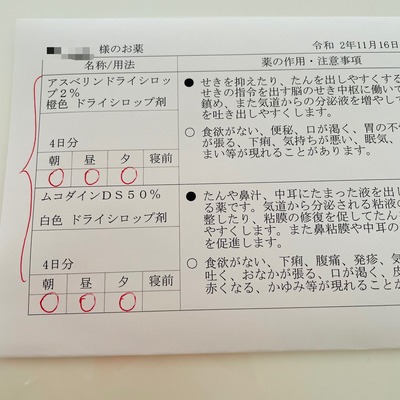 様のお薬
令和 2年11月16日
名称/用法
薬の作用・注意事項
アスベリンドライシロッ
プ2%
橙色 ドライシロップ剤
4日分
朝 昼 夕 寝前
● せきを抑えたり、たんを出しやすくする
せきの指令を出す脳のせき中枢に働いて
鎮め、また気道からの分泌液を増やして
を吐き出しやすくします。
○ 食欲がない、便秘、口が渇く、胃の不
が張る、下痢、気持ちが悪い、眠気、
まい等が現れることがあります。
ムコダインDS50%
白色 ドライシロップ剤
4日分
朝 昼 夕 寝前
● たんや鼻汁、中耳にたまった液を出し
る薬です。気道から分泌される粘液の
整したり、粘膜の修復を促してたん
やすくします。また鼻粘膜や中耳の
を促進します。
○ 食欲がない、下痢、腹痛、発疹、気
吐く、おなかが張る、口が渇く、皮
赤くなる、かゆみ等が現れることが